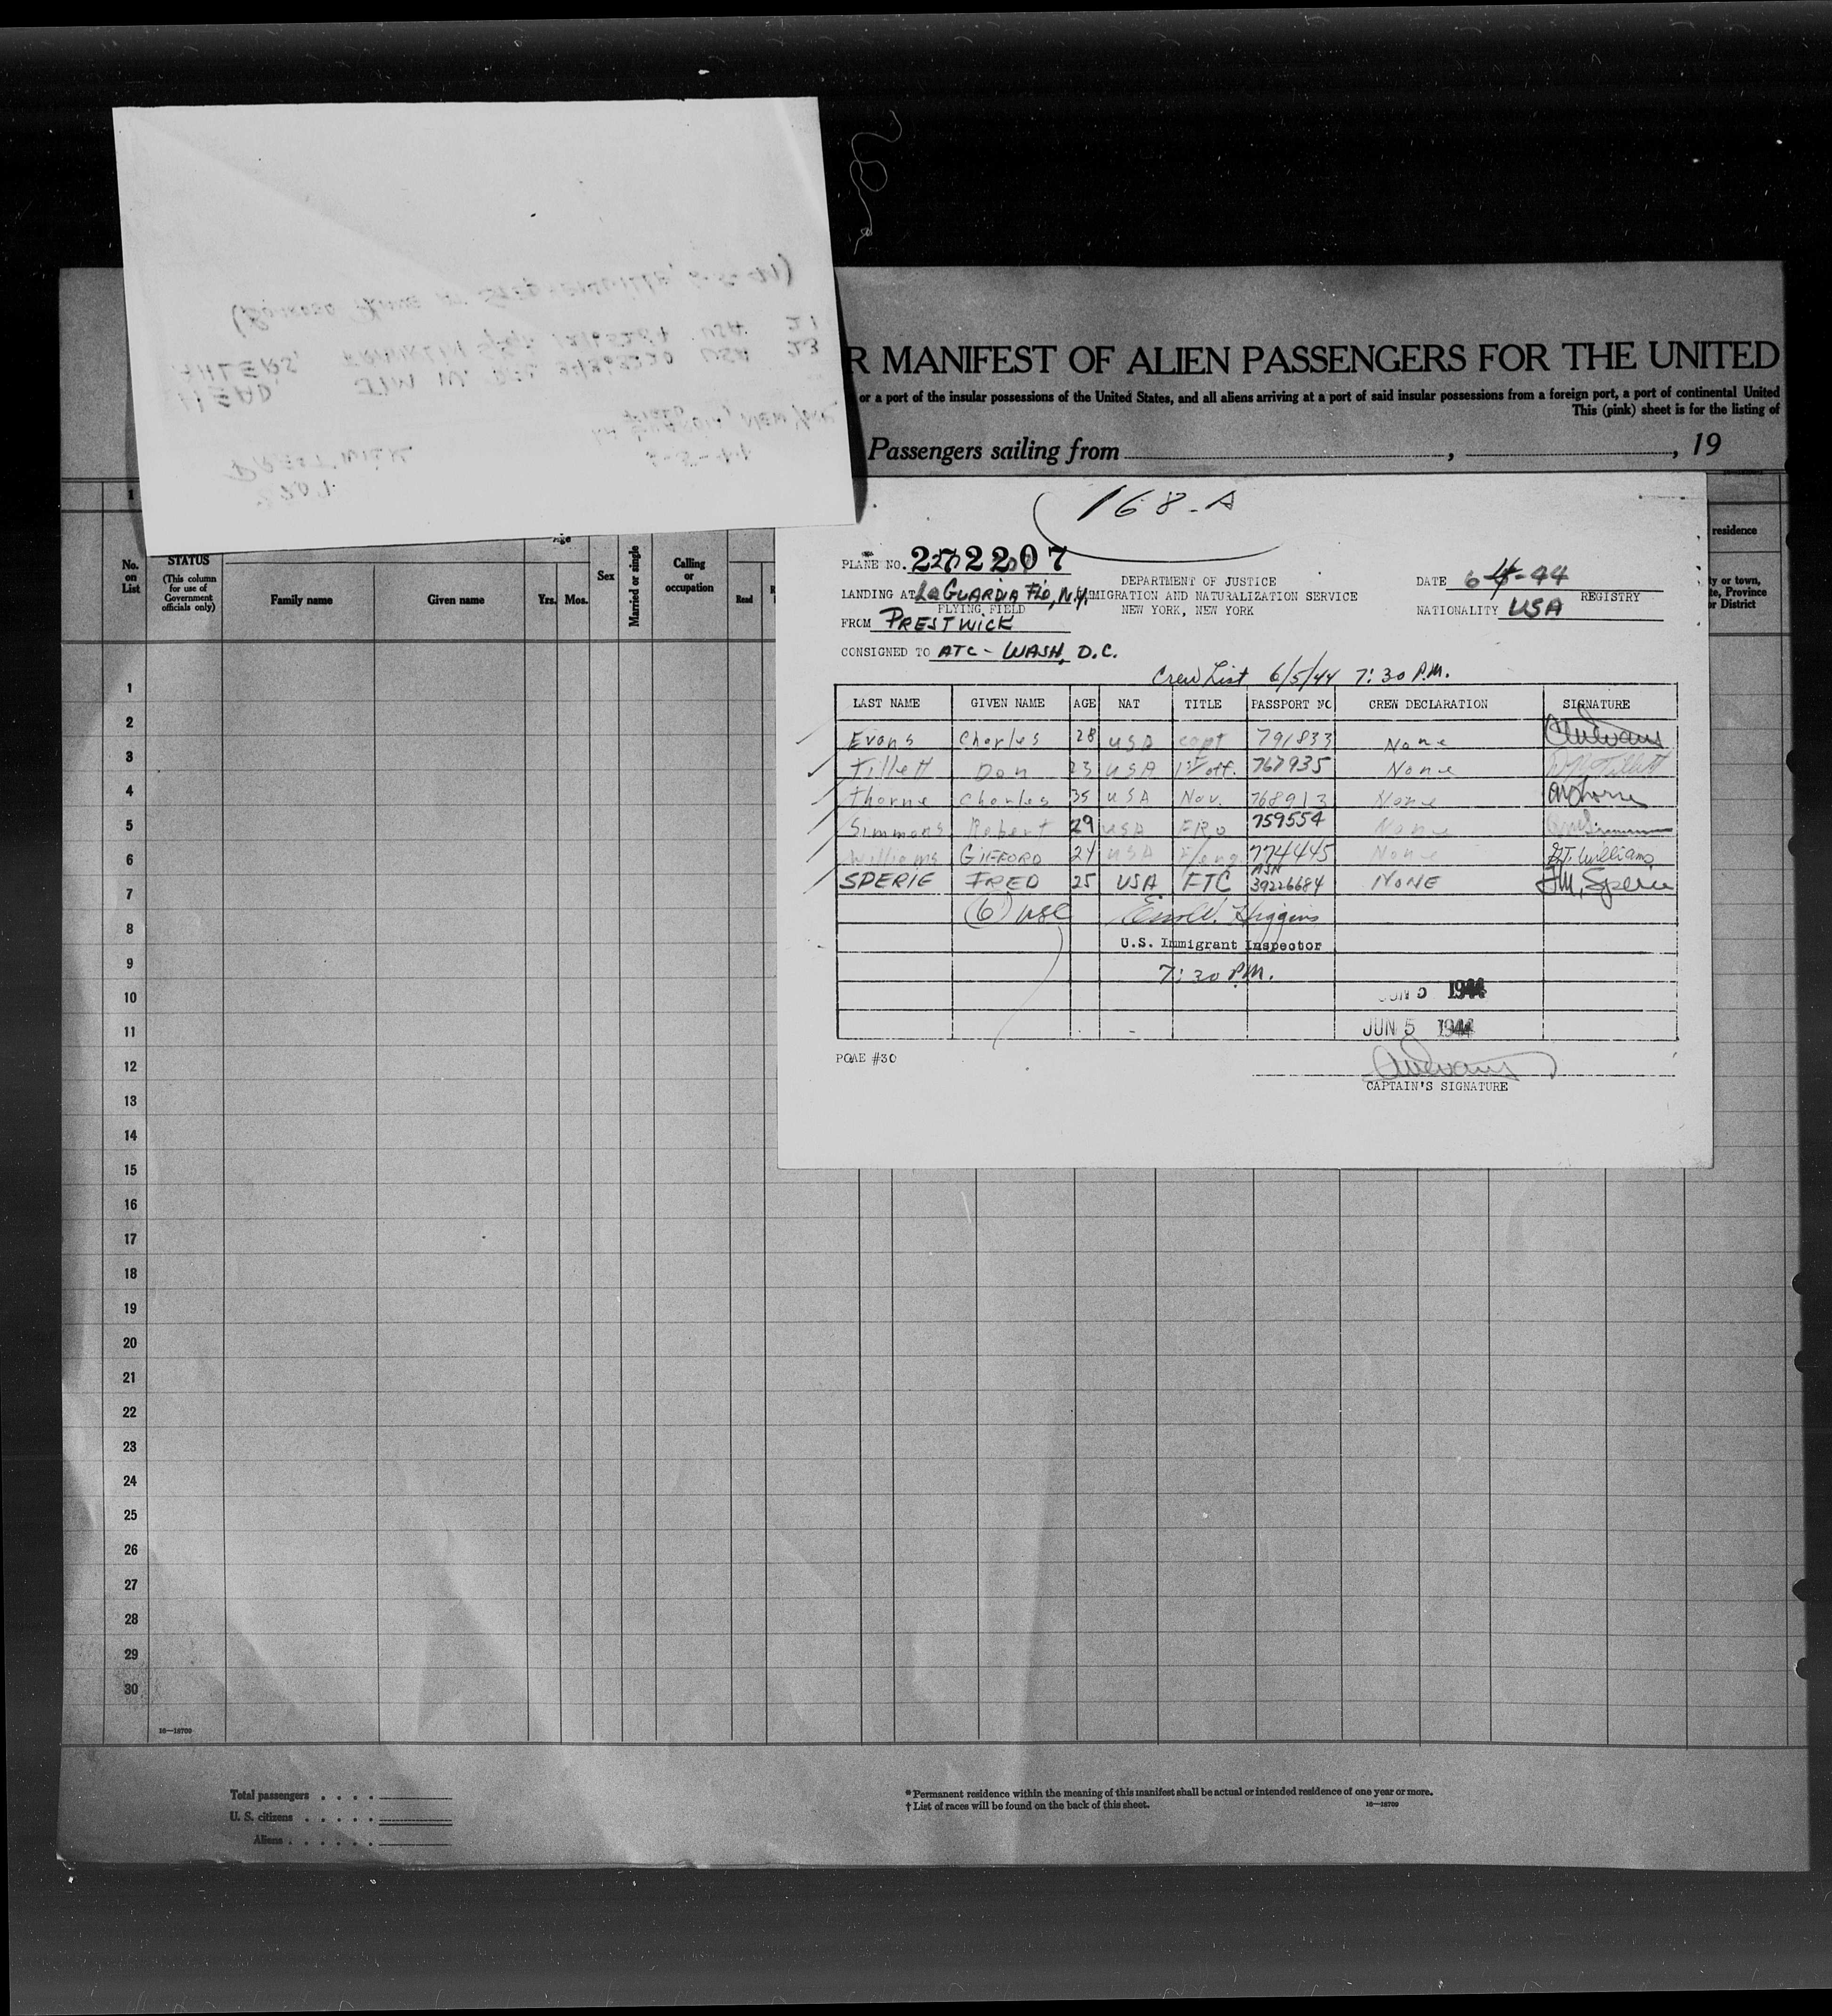 R MANIFEST OF ALIEN PASSENGERS FOR THE UNITED
or a port of the insular possessions of the United States, and all aliens arriving at a port of said insular possessions from a foreign port, a port of continental United
This (pink) sheet is for the listing of
Passengers sailing from , , 19
168-A
PLANE NO. 272207
DEPARTMENT OF JUSTICE
DATE 6-4-44
LANDING AT LaGUARDIA FLD, N.Y. IMMIGRATION AND NATURALIZATION SERVICE
REGISTRY
FLYING FIELD
NEW YORK, NEW YORK
NATIONALITY USA
FROM PRESTWICK
CONSIGNED TO ATC - WASH, D.C.
Crew List 6/5/44 7:30 P.M.
LAST NAME GIVEN NAME AGE NAT TITLE PASSPORT NO CREW DECLARATION SIGNATURE
Evans Charles 28 USA capt 791833 None
Tillett Don 23 USA 1st off. 767935 None
Thorne Charles 35 USA Nav. 768913 None
Simmons Robert 29 USA FRO 759554 None
Williams GIFFORD 24 USA F/eng. 774445 None G.T. Williams
SPERIE FRED 25 USA FTC ASN 39226684 NONE F.M. Sperie
(6) USC Higgins
U.S. Immigrant Inspector
7:30 P.M.
JUN 5 1944
JUN 5 1944
POAE #30
CAPTAIN'S SIGNATURE
residence
ty or town,
te, Province
or District
1
No.
on
List
STATUS
(This column
for use of
Government
officials only)
Family name
Given name
Age
Yrs. Mos.
Sex
Married or single
Calling
or
occupation
Read
1
2
3
4
5
6
7
8
9
10
11
12
13
14
15
16
17
18
19
20
21
22
23
24
25
26
27
28
29
30
16—18700
Total passengers . . . .
U. S. citizens . . . . .
Aliens . . . . . .
* Permanent residence within the meaning of this manifest shall be actual or intended residence of one year or more.
† List of races will be found on the back of this sheet.
16—18700